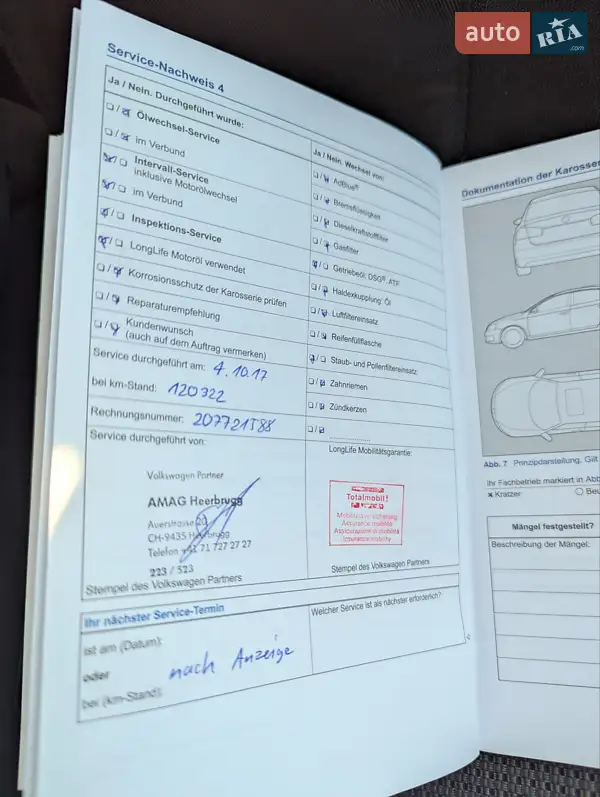 auto RIA .com
Service-Nachweis 4
Ja / Nein. Durchgeführt wurde:
Ölwechsel-Service
im Verbund
Intervall-Service
inklusive Motorölwechsel
im Verbund
Inspektions-Service
LongLife Motoröl verwendet
Korrosionsschutz der Karosserie prüfen
Reparaturempfehlung
Kundenwunsch
(auch auf dem Auftrag vermerken)
Service durchgeführt am: 4.10.17
bei km-Stand: 120322
Rechnungsnummer: 207721588
Service durchgeführt von:
Volkswagen Partner
AMAG Heerbrugg
Auerstrasse 20
CH-9435 Heerbrugg
Telefon +41 71 727 27 27
223 / 523
Stempel des Volkswagen Partners
Ja / Nein. Wechsel von:
AdBlue®
Bremsflüssigkeit
Dieselkraftstofffilter
Gasfilter
Getriebeöl, DSG®, ATF
Haldexkupplung: Öl
Luftfiltereinsatz
Reifenfüllflasche
Staub- und Pollenfiltereinsatz
Zahnriemen
Zündkerzen
LongLife Mobilitätsgarantie:
Totalmobil!
Mobilitätsversicherung
Assurance mobilité
Assicurazione di mobilità
Insurance mobility
Stempel des Volkswagen Partners
Ihr nächster Service-Termin
ist am (Datum):
oder nach Anzeige
bei (km-Stand):
Welcher Service ist als nächster erforderlich?
Dokumentation der Karosser
Abb. 7 Prinzipdarstellung. Gilt
Ihr Fachbetrieb markiert in Abb
x Kratzer
Mängel festgestellt?
Beschreibung der Mängel: